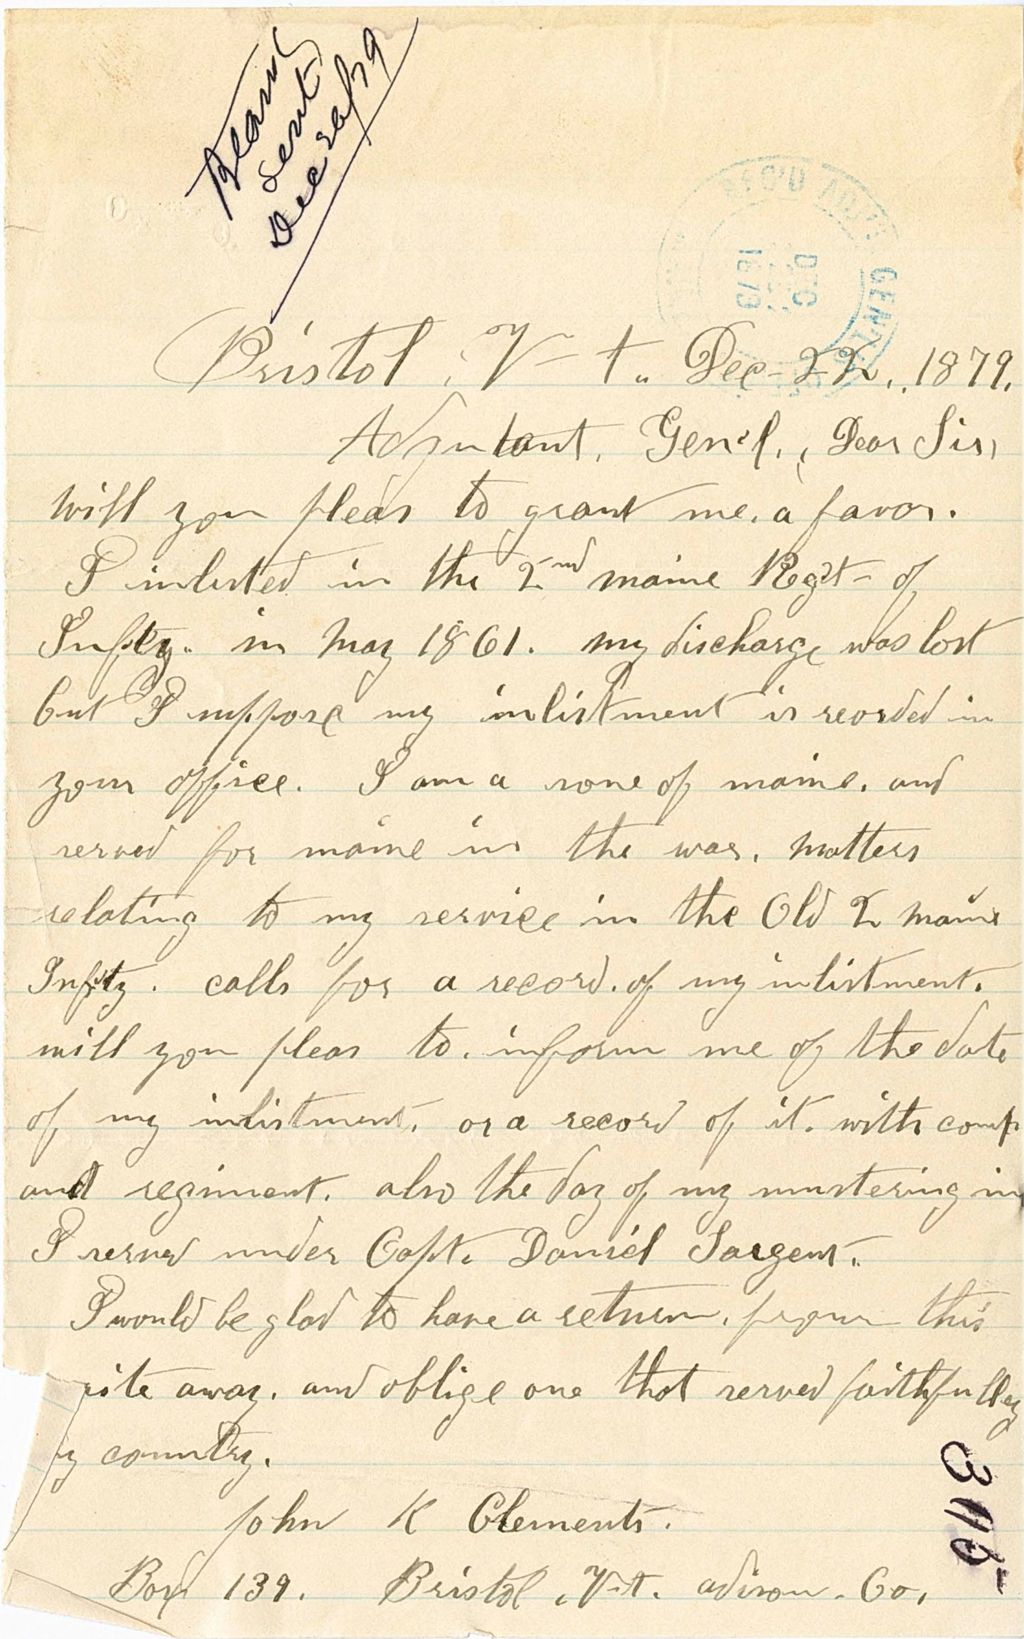 Blank
sent
Dec 26/79
REC'D ADJT GENERAL
DEC
1879
Bristol, V-t. Dec-22, 1879.
Adjutant, Gen'l, Dear Sir,
will you pleas to grant me, a favor.
I inlisted in the 2nd maine Regt- of
Infty. in May 1861. my discharge was lost
but I suppose my inlistment is reorded in
your office. I am a sone of maine, and
served for maine in the war, matters
relating to my service in the Old 2 maine
Infty. calls for a record, of my inlistment.
will you pleas to, inform me of the date
of my inlistment, or a record of it, with comp
and regiment. also the day of my mustering in
I served under Capt. Daniel Sargent.
I would be glad to have a return, from this
rite away, and oblige one that served faithfulley
y country.
John K Clements.
Box 139. Bristol, V-t. adison-Co,